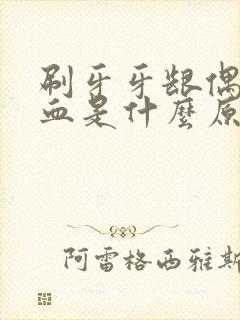 刷牙牙龈偶
血是什麼原
阿雷格西雅斯